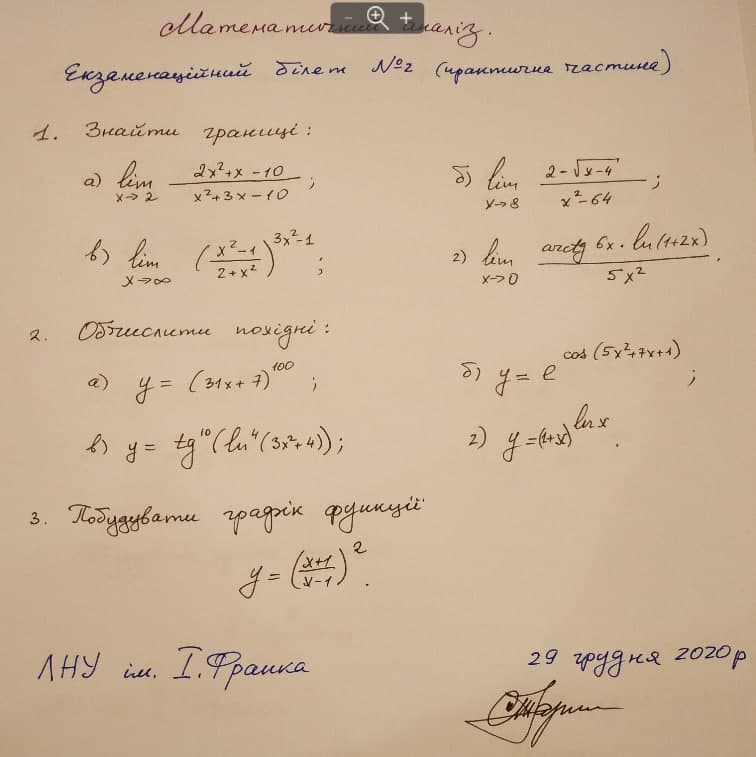 Математичний аналіз.
Екзаменаційний білет №2 (практична частина)
1. Знайти границі:
а) lim x→2 (2x²+x-10)/(x²+3x-10);
б) lim x→8 (2-√(x-4))/(x²-64);
в) lim x→∞ ((x²-1)/(2+x²))^(3x²-1);
г) lim x→0 (arctg 6x · ln(1+2x))/(5x²).
2. Обчислити похідні:
а) y = (31x+7)^100;
б) y = e^(cos(5x²+7x+1));
в) y = tg¹⁰(ln⁴(3x²+4));
г) y = (1+x)^(ln x).
3. Побудувати графік функції
y = ((x+1)/(x-1))².
ЛНУ ім. І.Франка
29 грудня 2020р